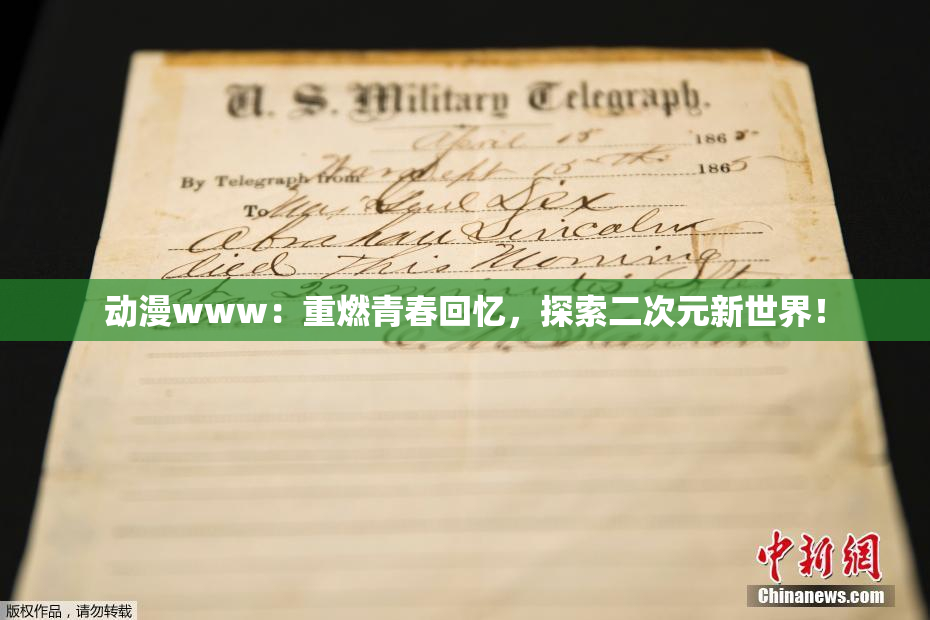 U. S. Military Telegraph.
April 15 1865
By Telegraph from War Dept 15th 1865
To Maj Genl Dix
Abraham Lincoln
died This Morning
at 22 minutes after
动漫www：重燃青春回忆，探索二次元新世界！
E. M. Stanton
中新网
Chinanews.com
版权作品，请勿转载